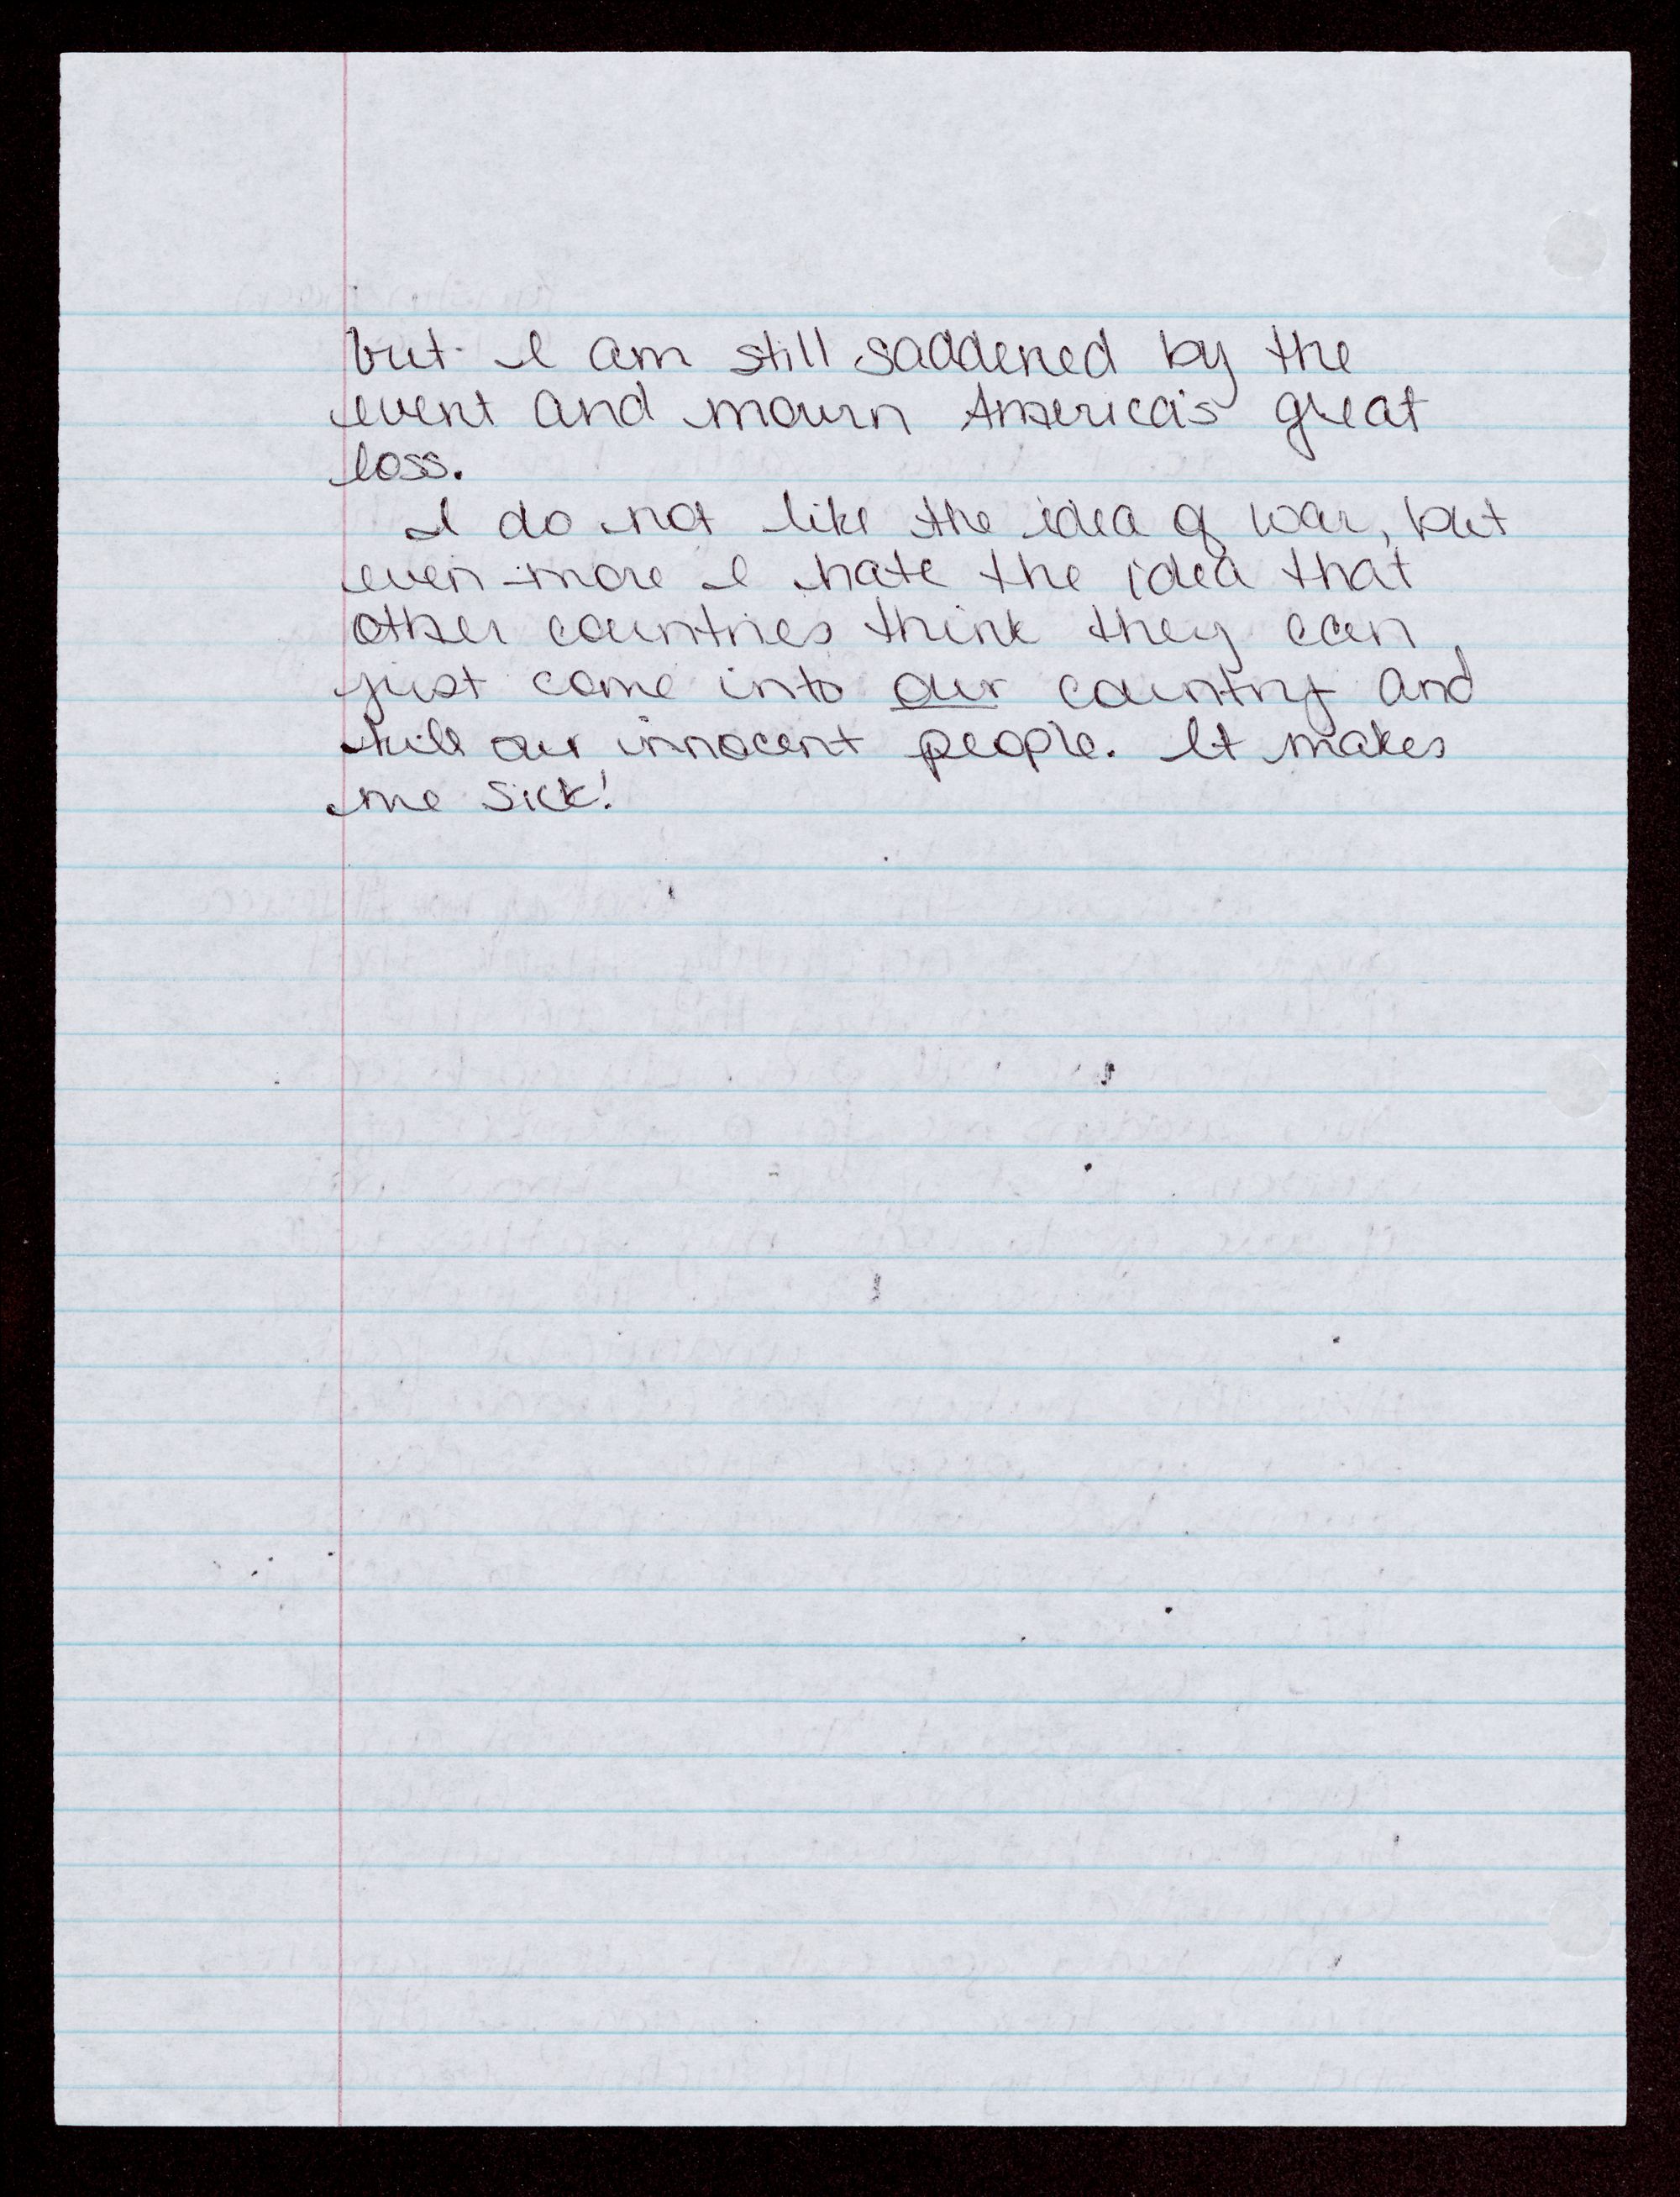 but I am still saddened by the
event and mourn America's great
loss.
I do not like the idea of war, but
even more I hate the idea that
other countries think they can
just come into our country and
kill our innocent people. It makes
me sick!